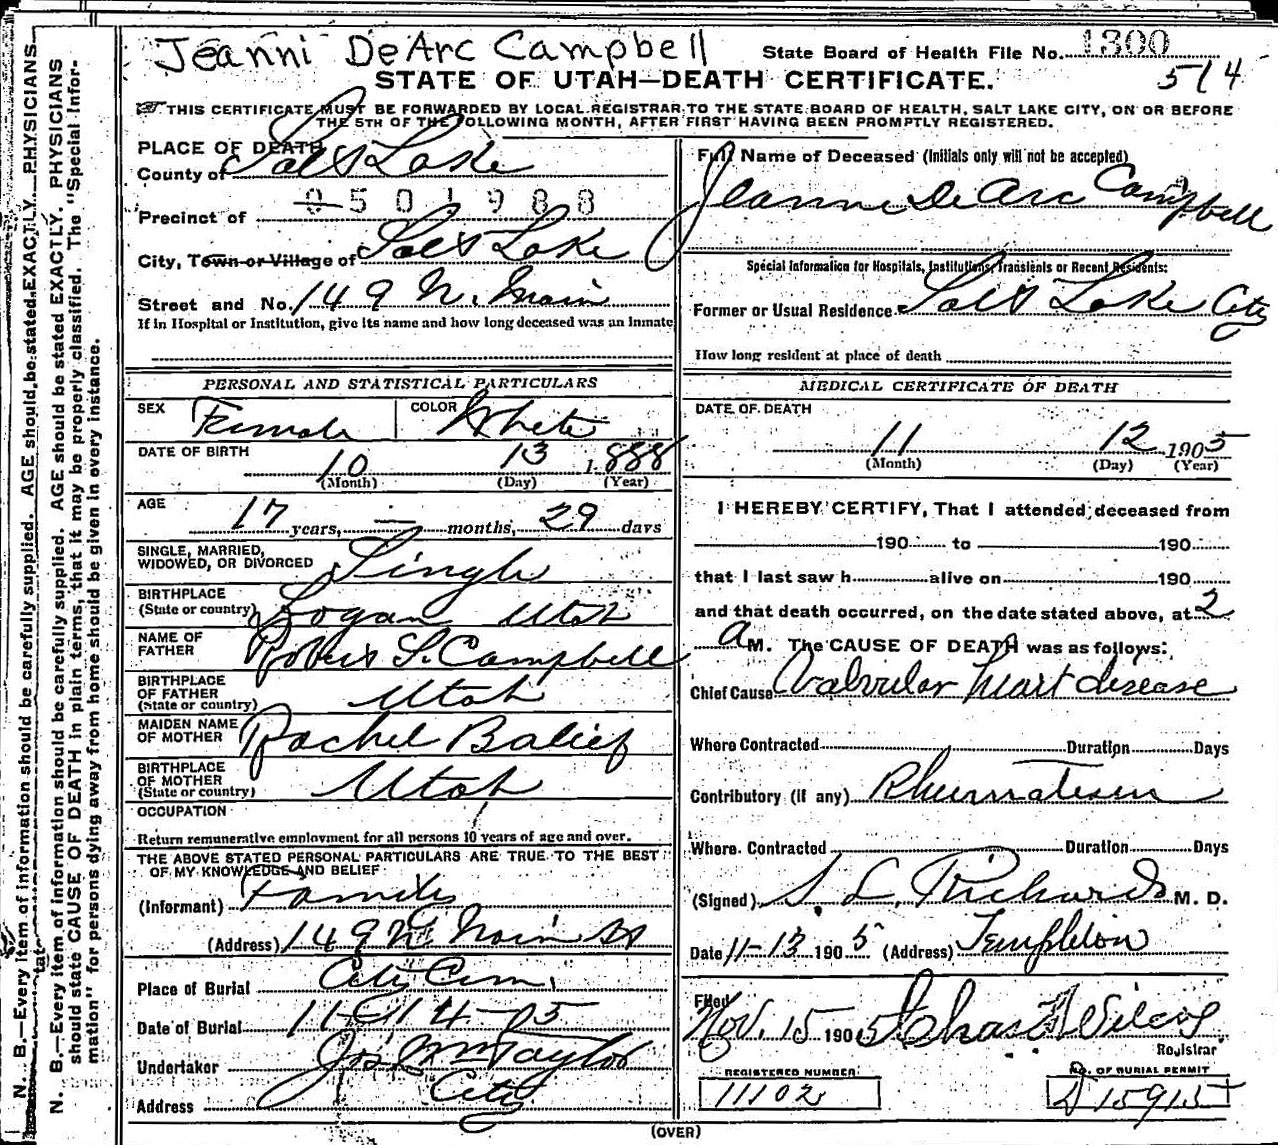 Jeanni DeArc Campbell
State Board of Health File No. 1300
514
STATE OF UTAH—DEATH CERTIFICATE.
THIS CERTIFICATE MUST BE FORWARDED BY LOCAL REGISTRAR TO THE STATE BOARD OF HEALTH, SALT LAKE CITY, ON OR BEFORE
THE 5TH OF THE FOLLOWING MONTH, AFTER FIRST HAVING BEEN PROMPTLY REGISTERED.
PLACE OF DEATH
County of Salt Lake
0501988
Precinct of
City, Town or Village of Salt Lake
Street and No. 149 N. Main
If in Hospital or Institution, give its name and how long deceased was an inmate
PERSONAL AND STATISTICAL PARTICULARS
SEX Female COLOR White
DATE OF BIRTH
10 13 1888
(Month) (Day) (Year)
AGE
17 years, — months, 29 days
SINGLE, MARRIED,
WIDOWED, OR DIVORCED Single
BIRTHPLACE
(State or country) Logan Utah
NAME OF
FATHER Robert S. Campbell
BIRTHPLACE
OF FATHER
(State or country) Utah
MAIDEN NAME
OF MOTHER Rachel Balief
BIRTHPLACE
OF MOTHER
(State or country) Utah
OCCUPATION
Return remunerative employment for all persons 10 years of age and over.
THE ABOVE STATED PERSONAL PARTICULARS ARE TRUE TO THE BEST
OF MY KNOWLEDGE AND BELIEF
(Informant) Family
(Address) 149 N Main St
Place of Burial City Cem.
Date of Burial 11-14-05
Undertaker Jos Wm Taylor
Address City
Full Name of Deceased (Initials only will not be accepted)
Jeanne De Arc Campbell
Special Information for Hospitals, Institutions, Transients or Recent Residents:
Former or Usual Residence Salt Lake City
How long resident at place of death
MEDICAL CERTIFICATE OF DEATH
DATE OF DEATH
11 12 1905
(Month) (Day) (Year)
I HEREBY CERTIFY, That I attended deceased from
190 to 190
that I last saw h alive on 190
and that death occurred, on the date stated above, at 2
a M. The CAUSE OF DEATH was as follows:
Chief Cause Valvular heart disease
Where Contracted Duration Days
Contributory (if any) Rheumatism
Where Contracted Duration Days
(Signed) S. L. Richards M. D.
Date 11-13 1905 (Address) Templeton
Filed
Nov. 15 1905 Chas F Wilcox
Registrar
REGISTERED NUMBER
11102
No. OF BURIAL PERMIT
D 15915
(OVER)
N. B.—Every item of information should be carefully supplied. AGE should be stated EXACTLY. PHYSICIANS
stat
N. B.—Every item of information should be carefully supplied. AGE should be stated EXACTLY. PHYSICIANS
should state CAUSE OF DEATH in plain terms, that it may be properly classified. The "Special Infor-
mation" for persons dying away from home should be given in every instance.